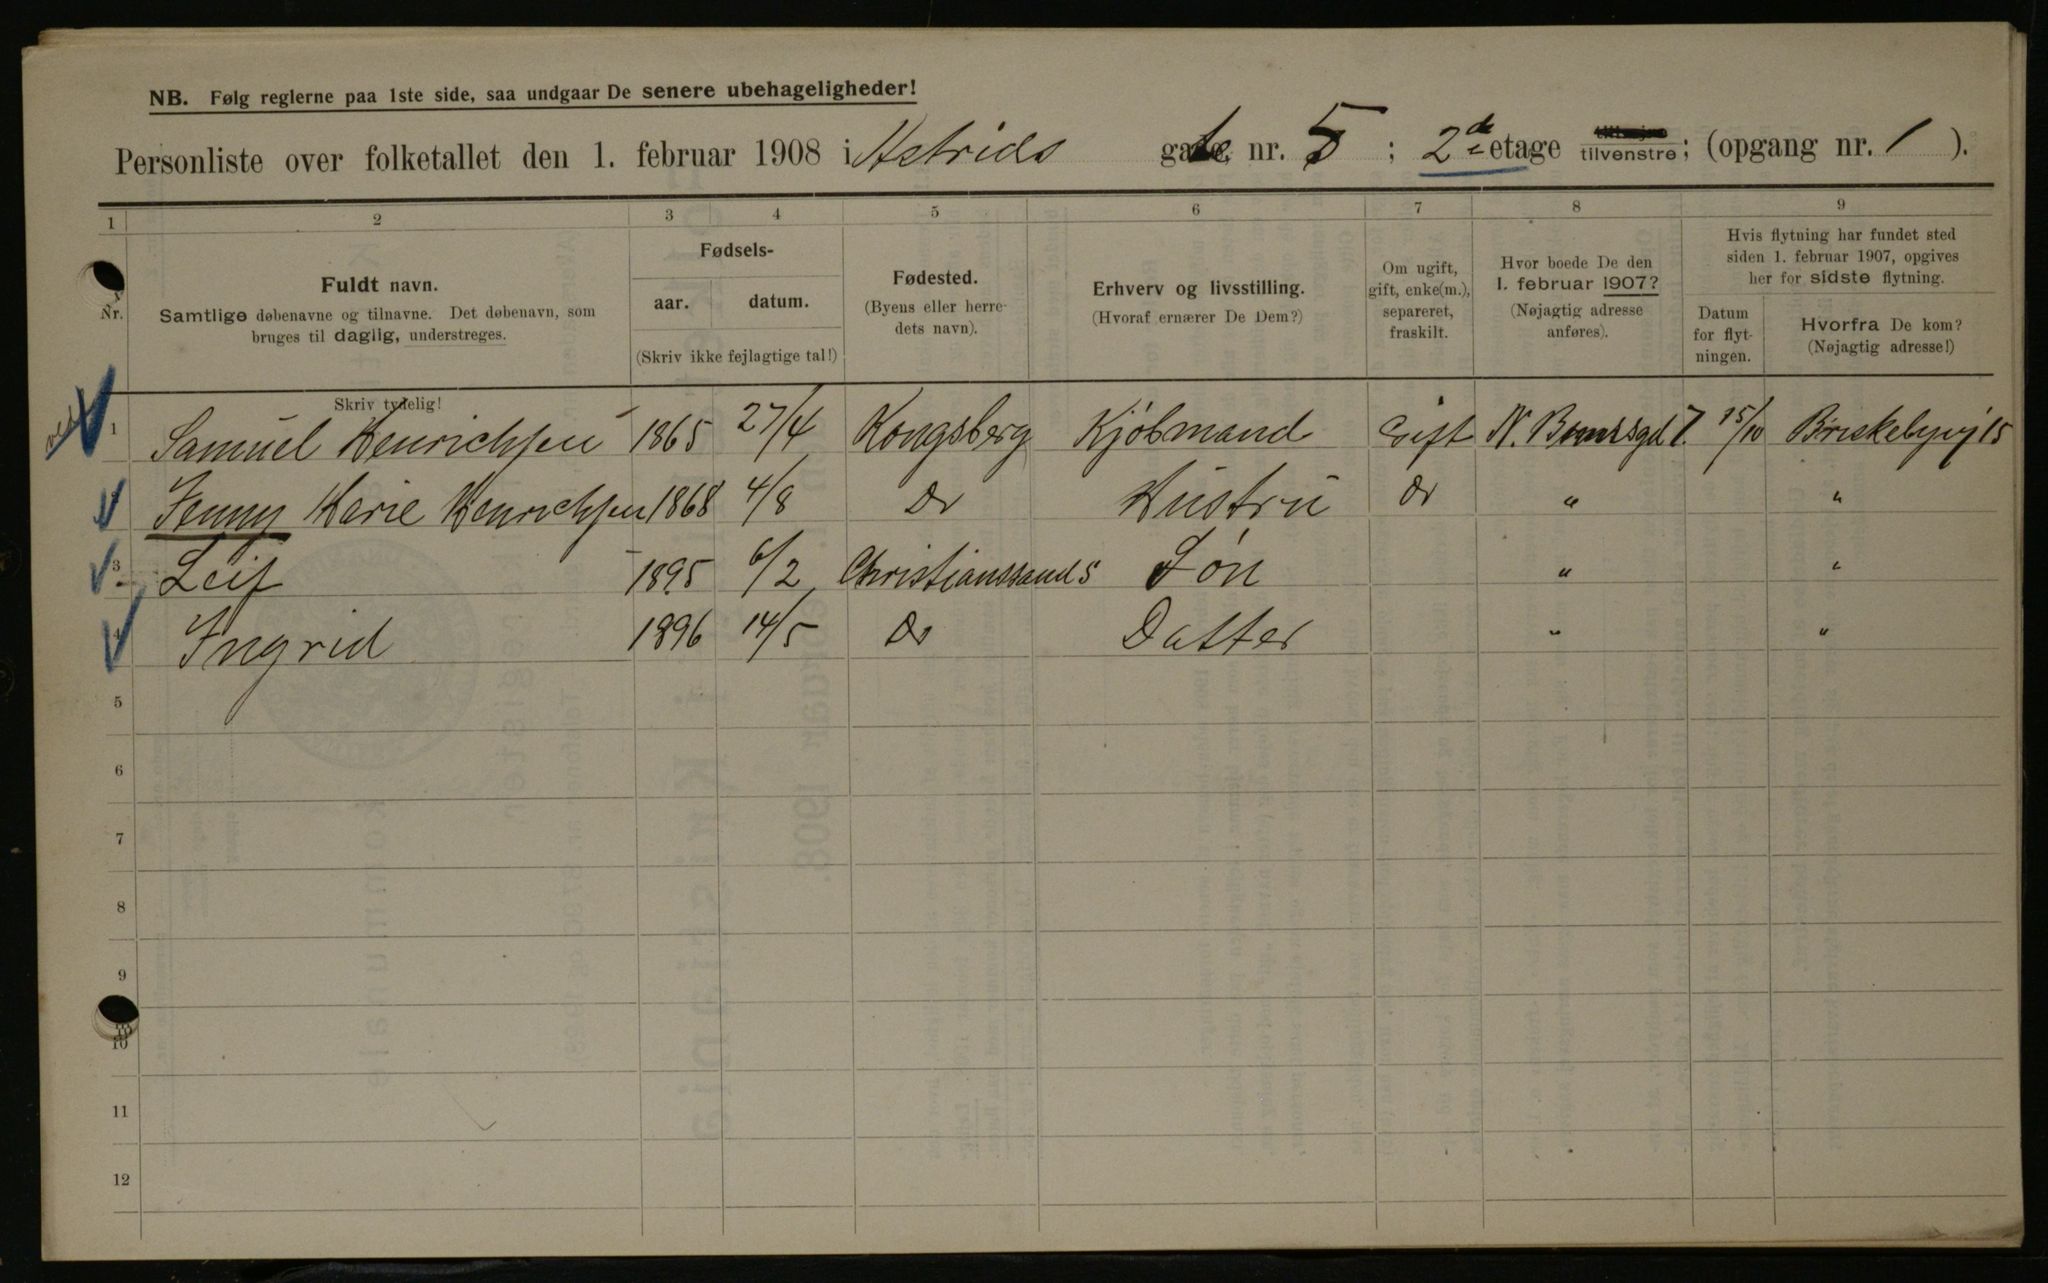 NB. Følg reglerne paa 1ste side, saa undgaar De senere ubehageligheder!
Personliste over folketallet den 1. februar 1908 i Astrids gate nr. 5 ; 2de etage tilvenstre; (opgang nr. 1 ).
1 2 3 4 5 6 7 8 9
Nr.
Fuldt navn.
Samtlige døbenavne og tilnavne. Det døbenavn, som
bruges til daglig, understreges.
Fødsels-
aar. datum.
(Skriv ikke fejlagtige tal!)
Fødested.
(Byens eller herre-
dets navn).
Erhverv og livsstilling.
(Hvoraf ernærer De Dem?)
Om ugift,
gift, enke(m.),
separeret,
fraskilt.
Hvor boede De den
1. februar 1907?
(Nøjagtig adresse
anføres).
Hvis flytning har fundet sted
siden 1. februar 1907, opgives
her for sidste flytning.
Datum
for flyt-
ningen.
Hvorfra De kom?
(Nøjagtig adresse!)
Skriv tydelig!
1 Samuel Henrichsen 1865 27/4 Kongsberg Kjöbmand Gift 7. 15/10 Briskebyvj 15
2 Jenny Marie Henrichsen 1868 4/8 Do Hustru Do " "
3 Leif 1895 6/2 Christianssands Søn " "
4 Ingrid 1896 14/5 Do Datter " "
5
6
7
8
9
10
11
12